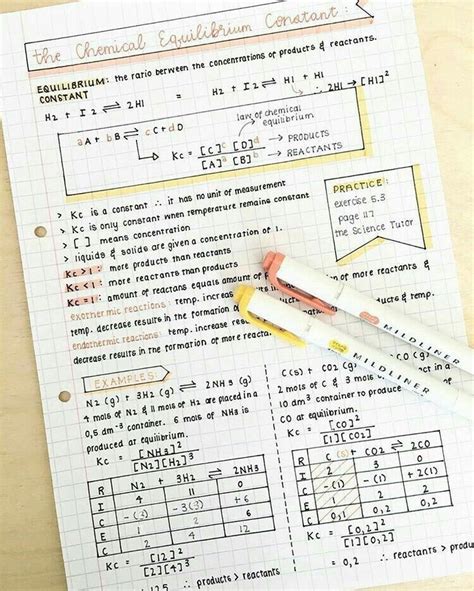 the Chemical Equilibrium Constant:
EQUILIBRIUM: the ratio between the concentrations of products & reactants.
CONSTANT
H2 + I2 ⇌ 2HI = H2 + I2 ⇌ HI + HI
∴ 2HI → [HI]²
law of chemical
equilibrium
aA + bB ⇌ cC + dD
Kc = [C]ᶜ [D]ᵈ → PRODUCTS
[A]ᵃ [B]ᵇ → REACTANTS
> Kc is a constant ∴ it has no unit of measurement
> Kc is only constant when temperature remains constant
> [ ] means concentration
> liquids & solids are given a concentration of 1.
PRACTICE:
exercise 5.3
page 117
the Science Tutor
Kc > 1: more products than reactants
Kc < 1: more reactants than products
Kc = 1: amount of reactants equals amount of
exothermic reactions: temp. increase of more reactants &
temp. decrease results in the formation of & temp.
endothermic reactions: temp. increase
decrease results in the formation of more
MILDLINER
MILDLINER
EXAMPLES:
N2 (g) + 3H2 (g) ⇌ 2NH3 (g)
4 mols of N2 & 11 mols of H2 are placed in a
0,5 dm⁻³ container. 6 mols of NH3 is
produced at equilibrium.
Kc = [NH3]²
[N2][H2]³
R N2 + 3H2 ⇌ 2NH3
I 4 11 0
C -(3) -3(3) +6
E 1 2 6
C 2 4 12
Kc = [12]²
[2][4]³
∴ products > reactants
C(s) + CO2 (g) CO (g)
2 mols of C & 3 mols
10 dm³ container to produce
CO at equilibrium.
Kc = [CO]²
[1][CO2]
R C (s) + CO2 ⇌ 2CO
I 2 3 0
C -(1) -(1) +2(1)
E 1 2 2
C 0,1 0,2 0,2
Kc = [0,2]²
[1][0,2]
= 0,2 ∴ reactants >